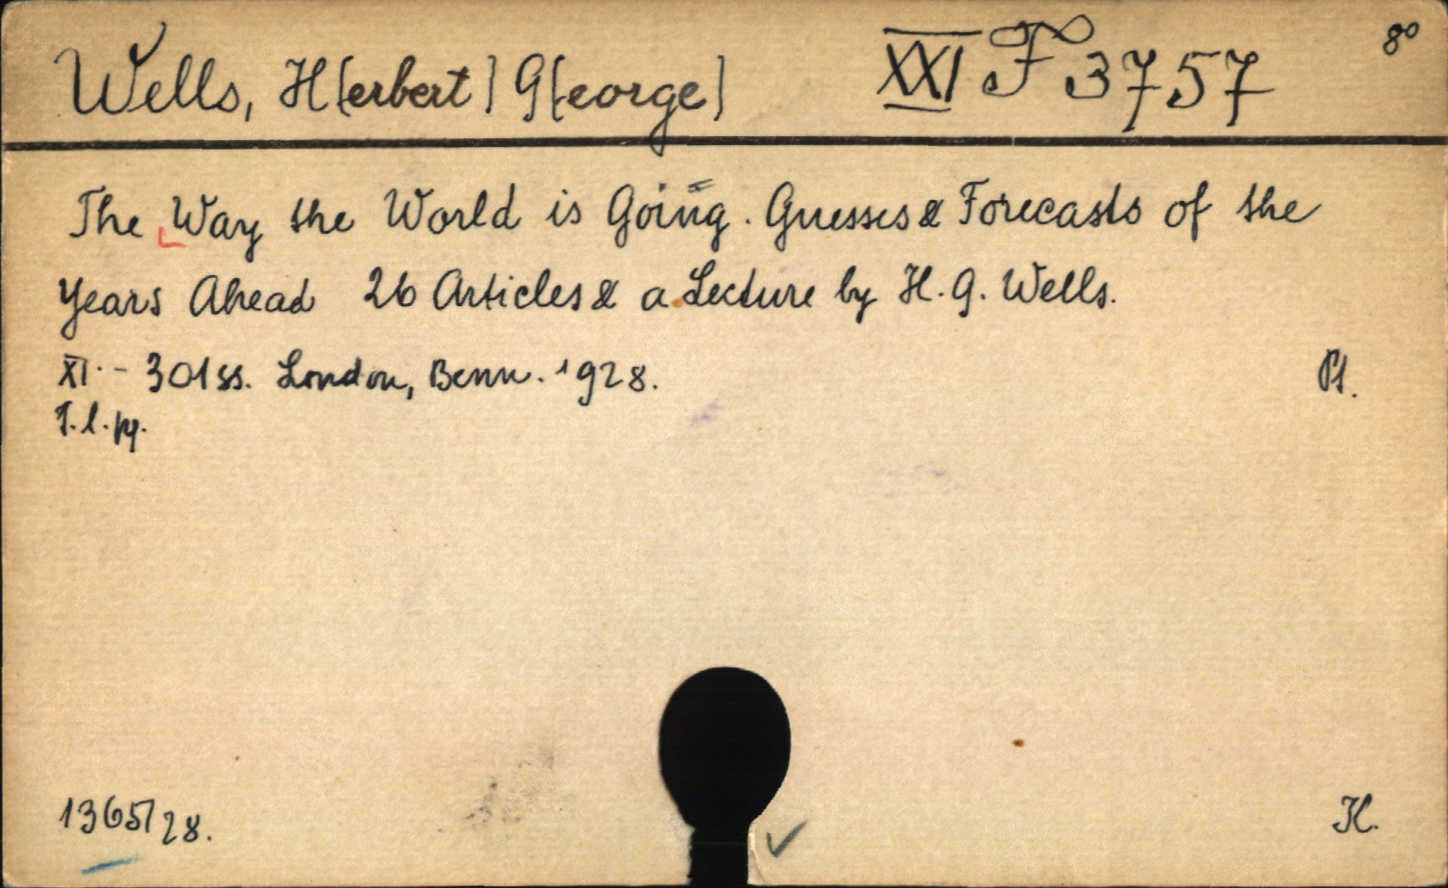 Wells, H[erbert] G[eorge]
XXI F 3757
8°
The Way the World is Going. Guesses & Forecasts of the
Years Ahead 26 Articles & a Lecture by H. G. Wells.
XI. - 301 ss. London, Benn. 1928.
Pł.
T. l. py.
1365/28.
K.